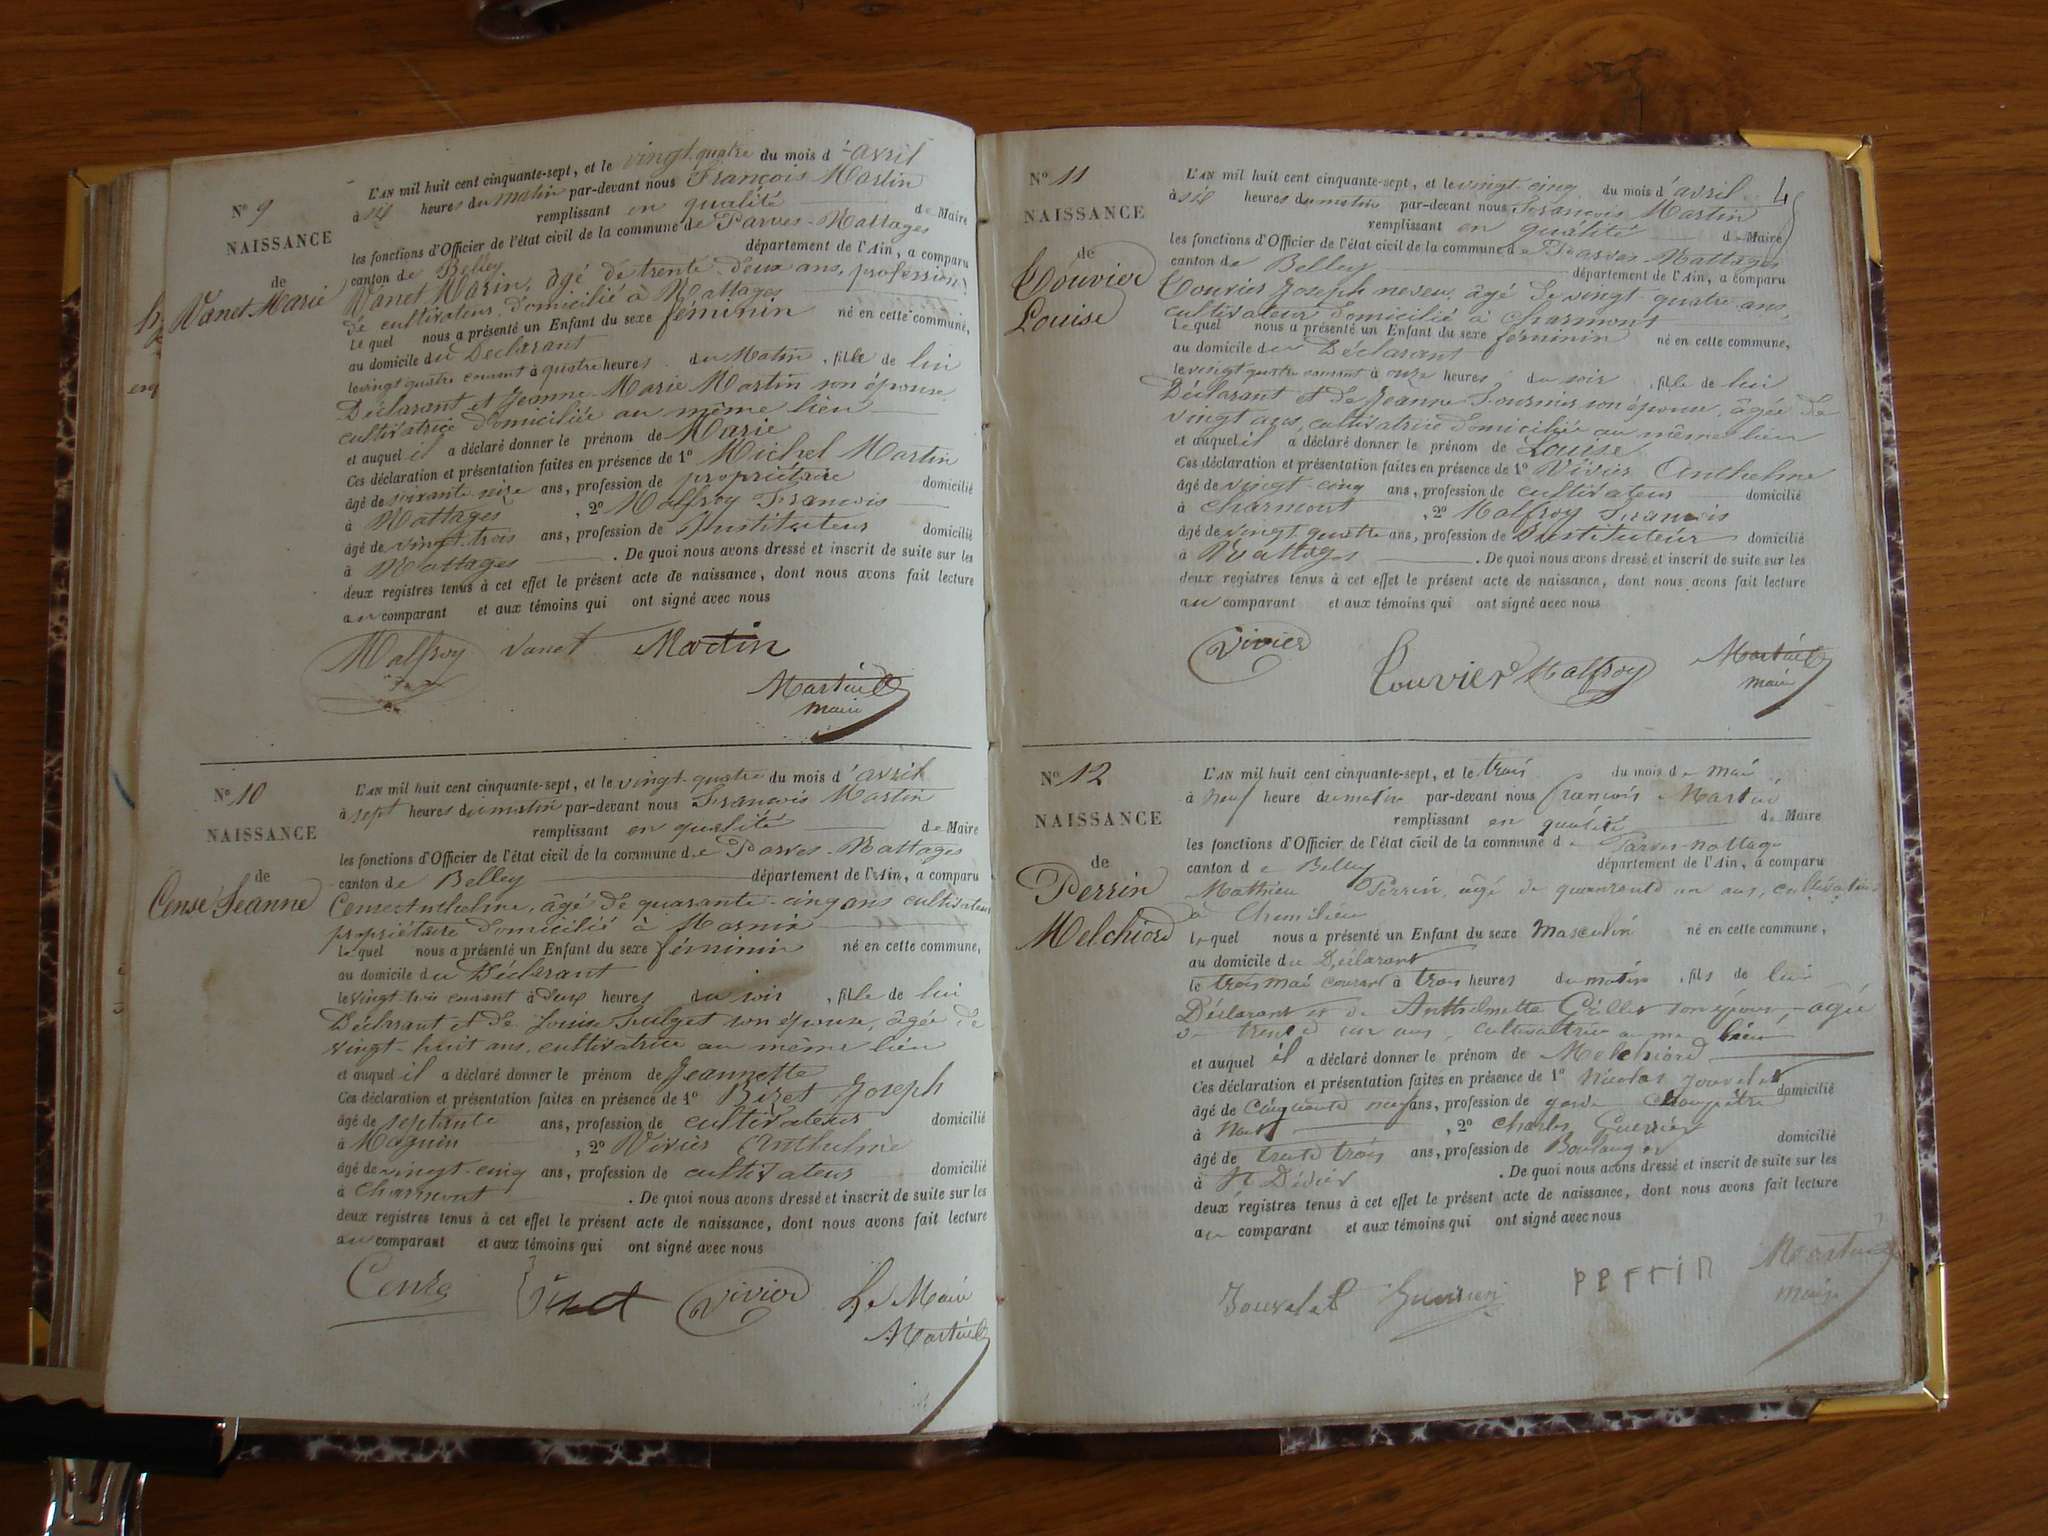 N° 9
NAISSANCE
de
Vanet Marie
L'AN mil huit cent cinquante-sept, et le vingt-quatre du mois d'avril
à six heures du matin par-devant nous François Martin
remplissant en qualité de Maire
les fonctions d'Officier de l'état civil de la commune de Parves-Nattages
canton de Belley département de l'Ain, a comparu
Vanet Marin, âgé de trente-deux ans, profession
de cultivateur, domicilié à Nattages
Lequel nous a présenté un Enfant du sexe féminin né en cette commune,
au domicile du Déclarant
le vingt quatre courant à quatre heures du Matin, fille de lui
Déclarant et Jeanne-Marie Martin son épouse
cultivatrice domiciliée au même lieu
et auquel il a déclaré donner le prénom de Marie
Ces déclaration et présentation faites en présence de 1° Michel Martin
âgé de soixante-seize ans, profession de propriétaire domicilié
à Nattages, 2° Malfroy François
âgé de vingt-trois ans, profession de Instituteur domicilié
à Nattages. De quoi nous avons dressé et inscrit de suite sur les
deux registres tenus à cet effet le présent acte de naissance, dont nous avons fait lecture
au comparant et aux témoins qui ont signé avec nous
Malfroy Vanet Martin
Martin
maire
N° 10
NAISSANCE
de
Cense Jeanne
L'AN mil huit cent cinquante-sept, et le vingt-quatre du mois d'avril
à sept heures du matin par-devant nous François Martin
remplissant en qualité de Maire
les fonctions d'Officier de l'état civil de la commune de Parves-Nattages
canton de Belley département de l'Ain, a comparu
Cense Anthelme, âgé de quarante-cinq ans cultivateur
propriétaire domicilié à
Lequel nous a présenté un Enfant du sexe féminin né en cette commune,
au domicile du Déclarant
le vingt-trois courant à deux heures du soir, fille de lui
Déclarant et de Louise son épouse, âgée de
vingt-huit ans, cultivatrice au même lieu
et auquel il a déclaré donner le prénom de Jeannette
Ces déclaration et présentation faites en présence de 1° Bizet Joseph
âgé de septante ans, profession de cultivateur domicilié
à, 2° Vivier Anthelme
âgé de vingt-cinq ans, profession de cultivateur domicilié
à Charmont. De quoi nous avons dressé et inscrit de suite sur les
deux registres tenus à cet effet le présent acte de naissance, dont nous avons fait lecture
au comparant et aux témoins qui ont signé avec nous
Vivier Le Maire
Martin
4
N° 11
NAISSANCE
de
Couvier
Louise
L'AN mil huit cent cinquante-sept, et le vingt-cinq du mois d'avril
à six heures du matin par-devant nous François Martin
remplissant en qualité de Maire
les fonctions d'Officier de l'état civil de la commune de Parves-Nattages
canton de Belley département de l'Ain, a comparu
Couvier Joseph neveu, âgé de vingt-quatre ans,
cultivateur domicilié à Charmont
Lequel nous a présenté un Enfant du sexe féminin né en cette commune,
au domicile du Déclarant
le vingt quatre courant à onze heures du soir, fille de lui
Déclarant et de Jeanne Fournier son épouse, âgée de
vingt ans, cultivatrice domiciliée au même lieu
et auquel il a déclaré donner le prénom de Louise
Ces déclaration et présentation faites en présence de 1° Vivier Anthelme
âgé de vingt-cinq ans, profession de cultivateur domicilié
à Charmont, 2° Malfroy François
âgé de vingt quatre ans, profession de Instituteur domicilié
à Nattages. De quoi nous avons dressé et inscrit de suite sur les
deux registres tenus à cet effet le présent acte de naissance, dont nous avons fait lecture
au comparant et aux témoins qui ont signé avec nous
Vivier
Couvier Malfroy Martin
maire
N° 12
NAISSANCE
de
Perrin
Melchiord
L'AN mil huit cent cinquante-sept, et le trois du mois de mai
à neuf heure du matin par-devant nous François Martin
remplissant en qualité de Maire
les fonctions d'Officier de l'état civil de la commune de Parves-nattage
canton de Belley département de l'Ain, a comparu
Mathieu Perrin, âgé de quarante un ans, cultivateur
à Chemilieu
Lequel nous a présenté un Enfant du sexe Masculin né en cette commune,
au domicile du Déclarant
le trois mai courant à trois heures du matin, fils de lui
Déclarant et de Anthelmette son épouse, âgée
de trente un ans, cultivatrice au même lieu
et auquel il a déclaré donner le prénom de Melchiord
Ces déclaration et présentation faites en présence de 1° Nicolas Jouvelet
âgé de cinquante neuf ans, profession de garde champêtre domicilié
à, 2° Charles Guerrier
âgé de trente trois ans, profession de Boulanger domicilié
à St Didier. De quoi nous avons dressé et inscrit de suite sur les
deux registres tenus à cet effet le présent acte de naissance, dont nous avons fait lecture
au comparant et aux témoins qui ont signé avec nous
Jouvelet Perrin Martin
maire